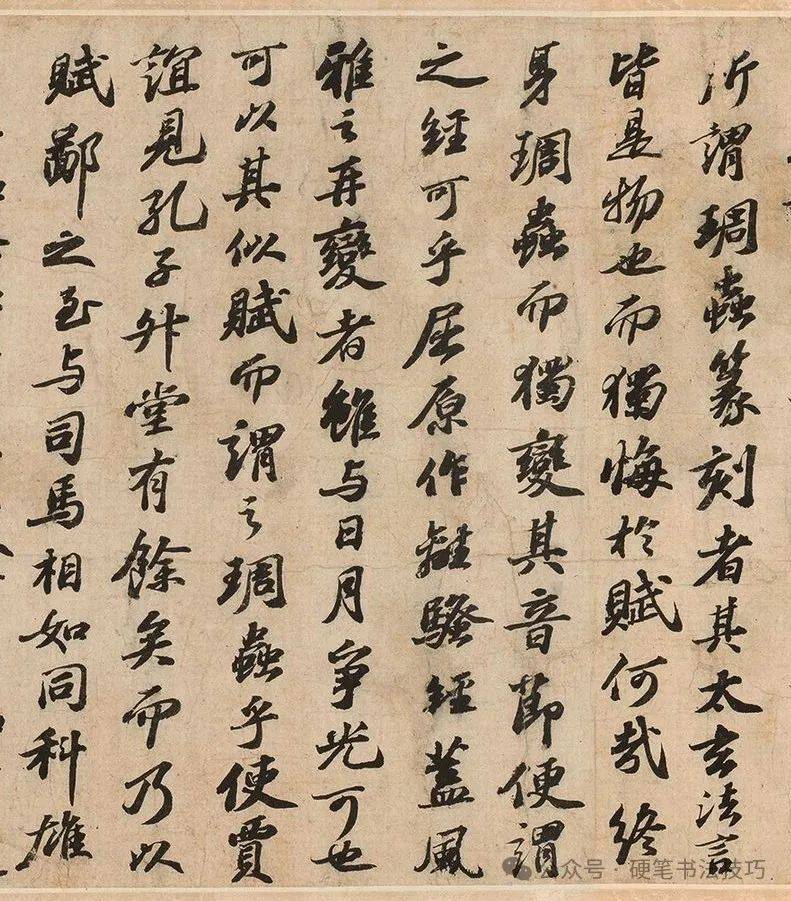 所謂琱蟲篆刻者其太玄法言
皆是物也而獨悔於賦何哉終
身琱蟲而獨變其音節便謂
之經可乎屈原作離騷經蓋風
雅之再變者雖与日月爭光可也
可以其似賦而謂之琱蟲乎使賈
誼見孔子升堂有餘矣而乃以
賦鄙之至与司馬相如同科雄
公众号 · 硬笔书法技巧